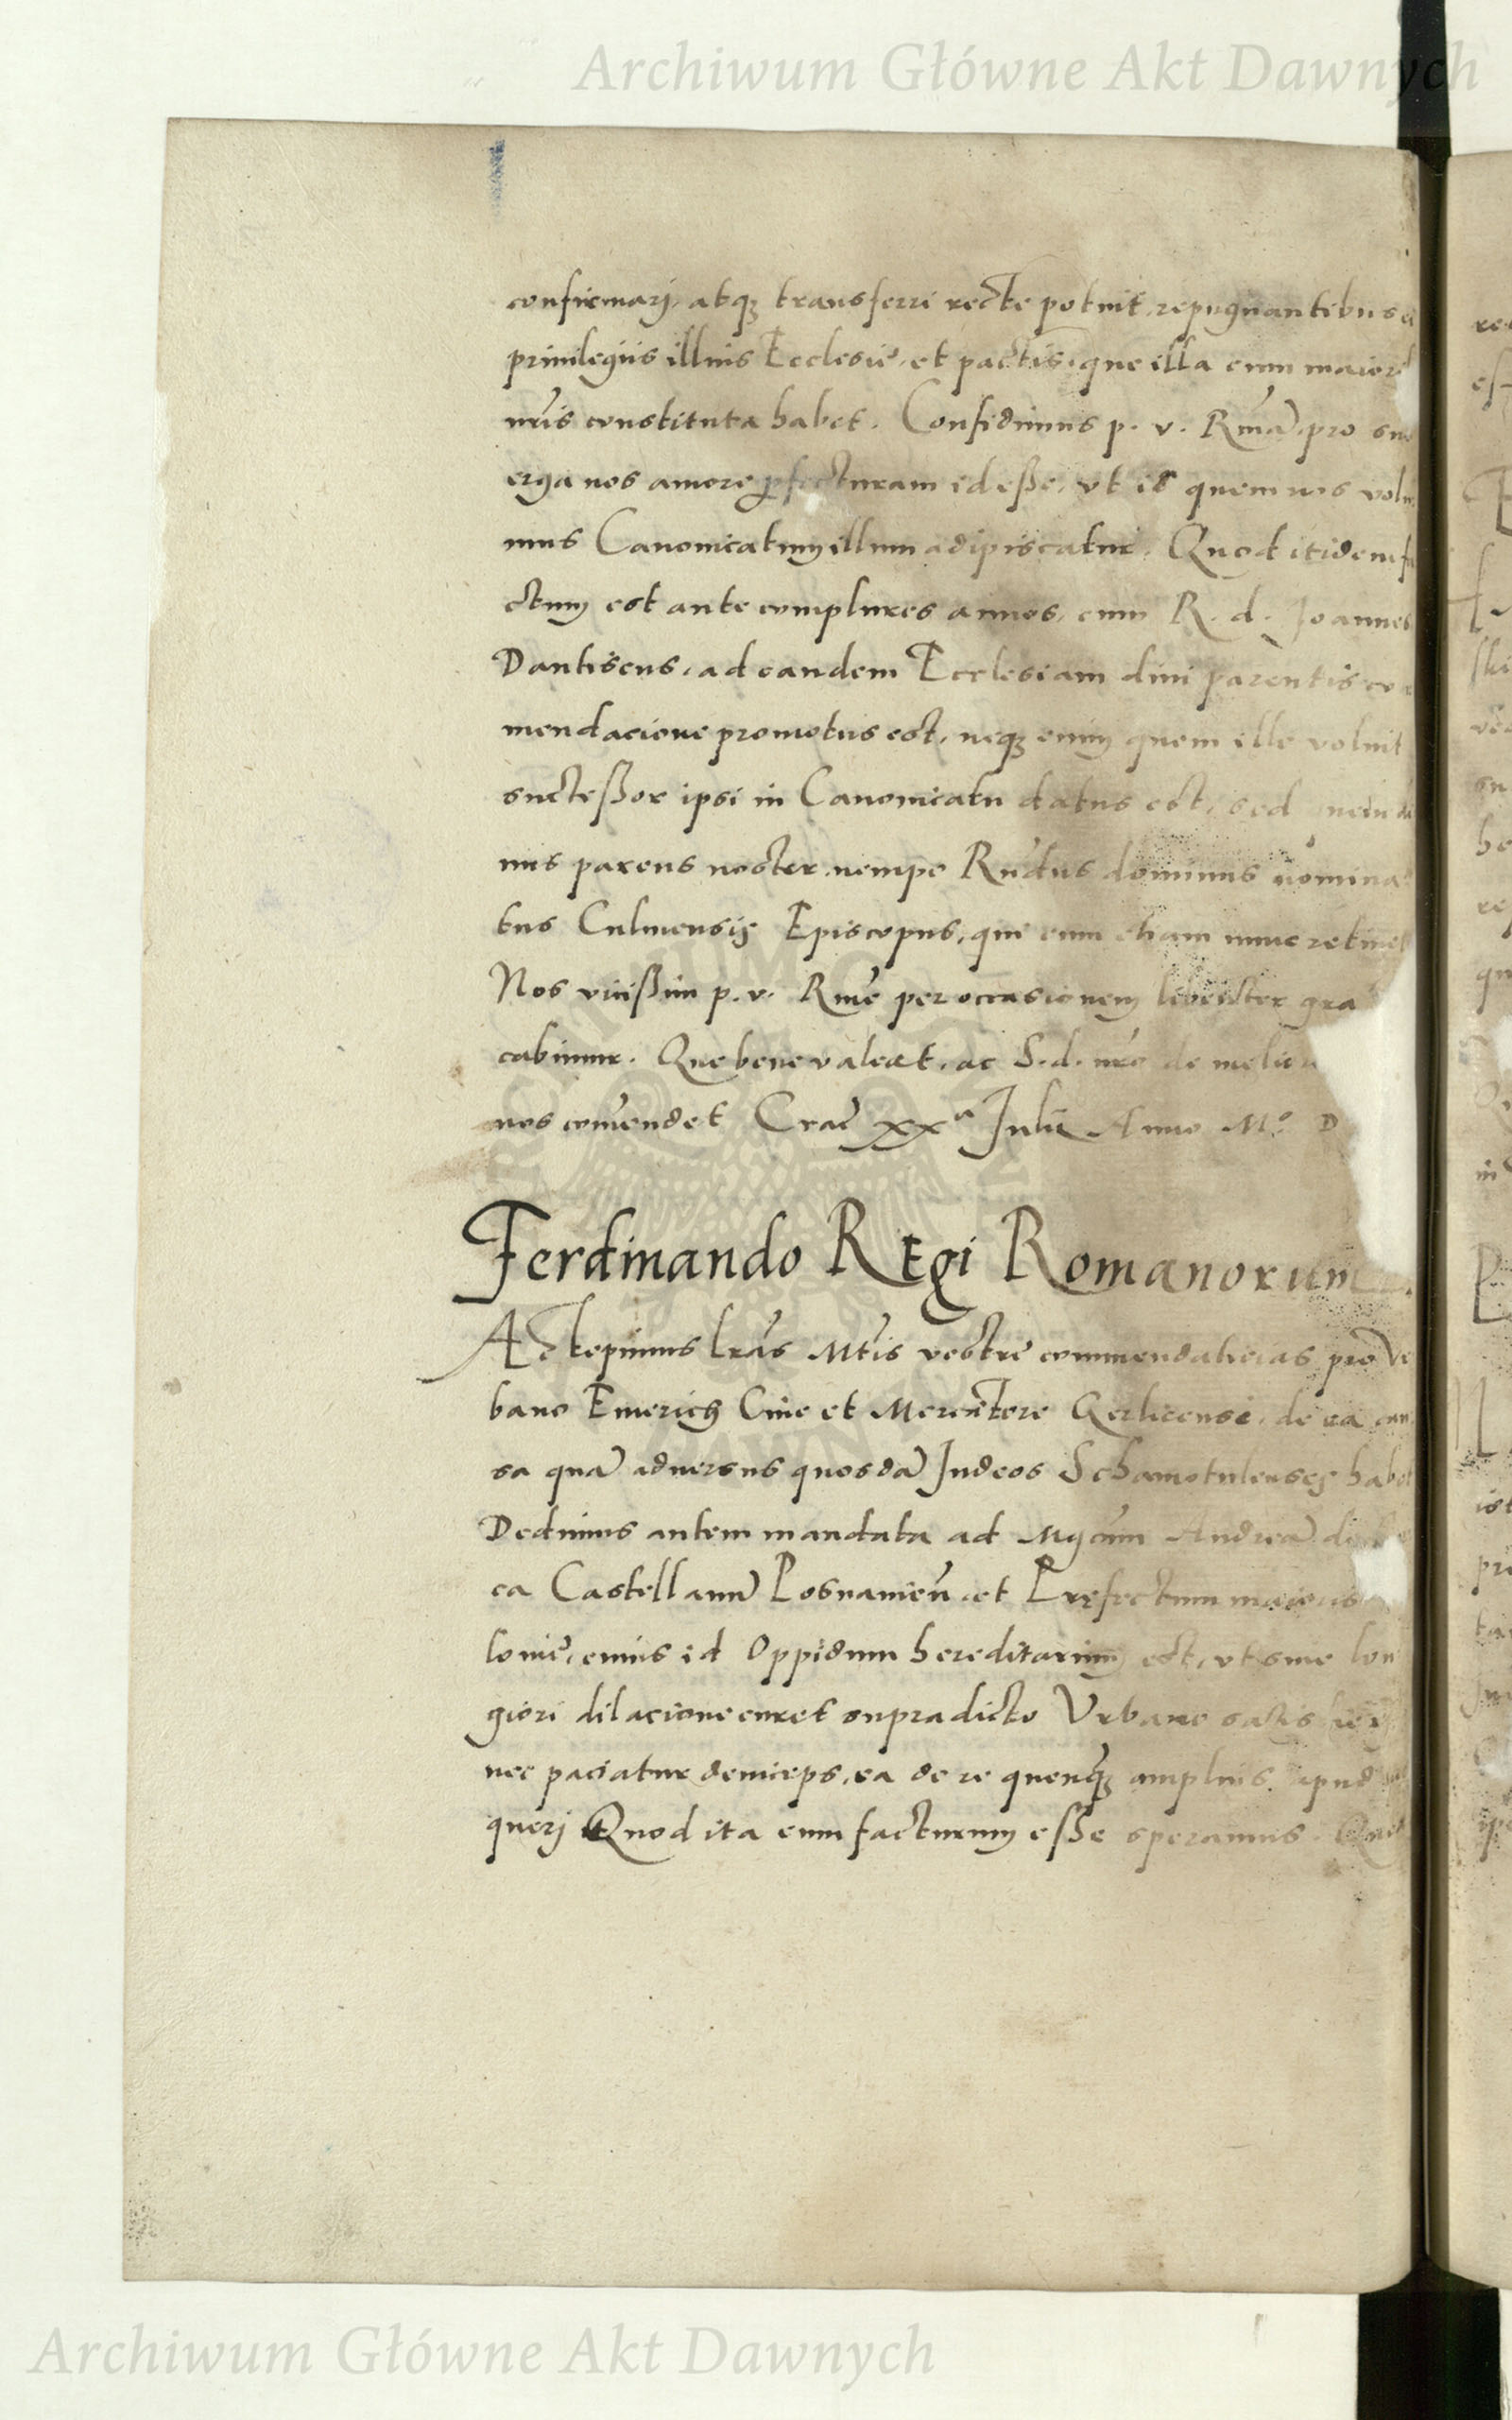 Archiwum Główne Akt Dawnych
confirmarj, atqʒ transferri recte potuit, repugnantibus
priuilegiis illius Ecclesiæ, et pactis, que illa cum maior
nrīs constituta habet. Confidimus p. v. Rmā, pro suo
erga nos amore perfecturam id esse, vt is quem nos volu
mus Canonicatum illum adipiscatur. Quod itidem fa
ctum est ante complures annos, cum R. d. Joannes
Dantiscus, ad eandem Ecclesiam diui parentis co
mendacione promotus est, neqʒ enim quem ille voluit
successor ipsi in Canonicatu datus est, sed quem di
uus parens noster, nempe Rndus dominus nomina
tus Culmensis Episcopus, qui eum etiam nunc retinet
Nos vicissim p. v. Rme per occasionem libenter gra
cabimur. Que bene valeat, ac S. d. nrō de meliori
nos comendet Crac xxa Julii Anno Mo D
Ferdinando Regi Romanorum
Accepimus lrās Mtis vestre commendaticias pro Vr
bano Emerich Ciue et Mercatore Gerlicensi, de ea cau
sa quā aduersus quosdā Judeos Schamotulenses habet
Dedimus autem mandata ad Mgcum Andreā de
ca Castellanū Posnanien et Prefectum maioris
lonie, cuius id Oppidum hereditarium est, vt sine lon
giori dilacione curet supradicto Vrbano satis
nec paciatur deinceps, ea de re quenqʒ amplius apud
querj Quod ita eum facturum esse speramus.
Archiwum Główne Akt Dawnych